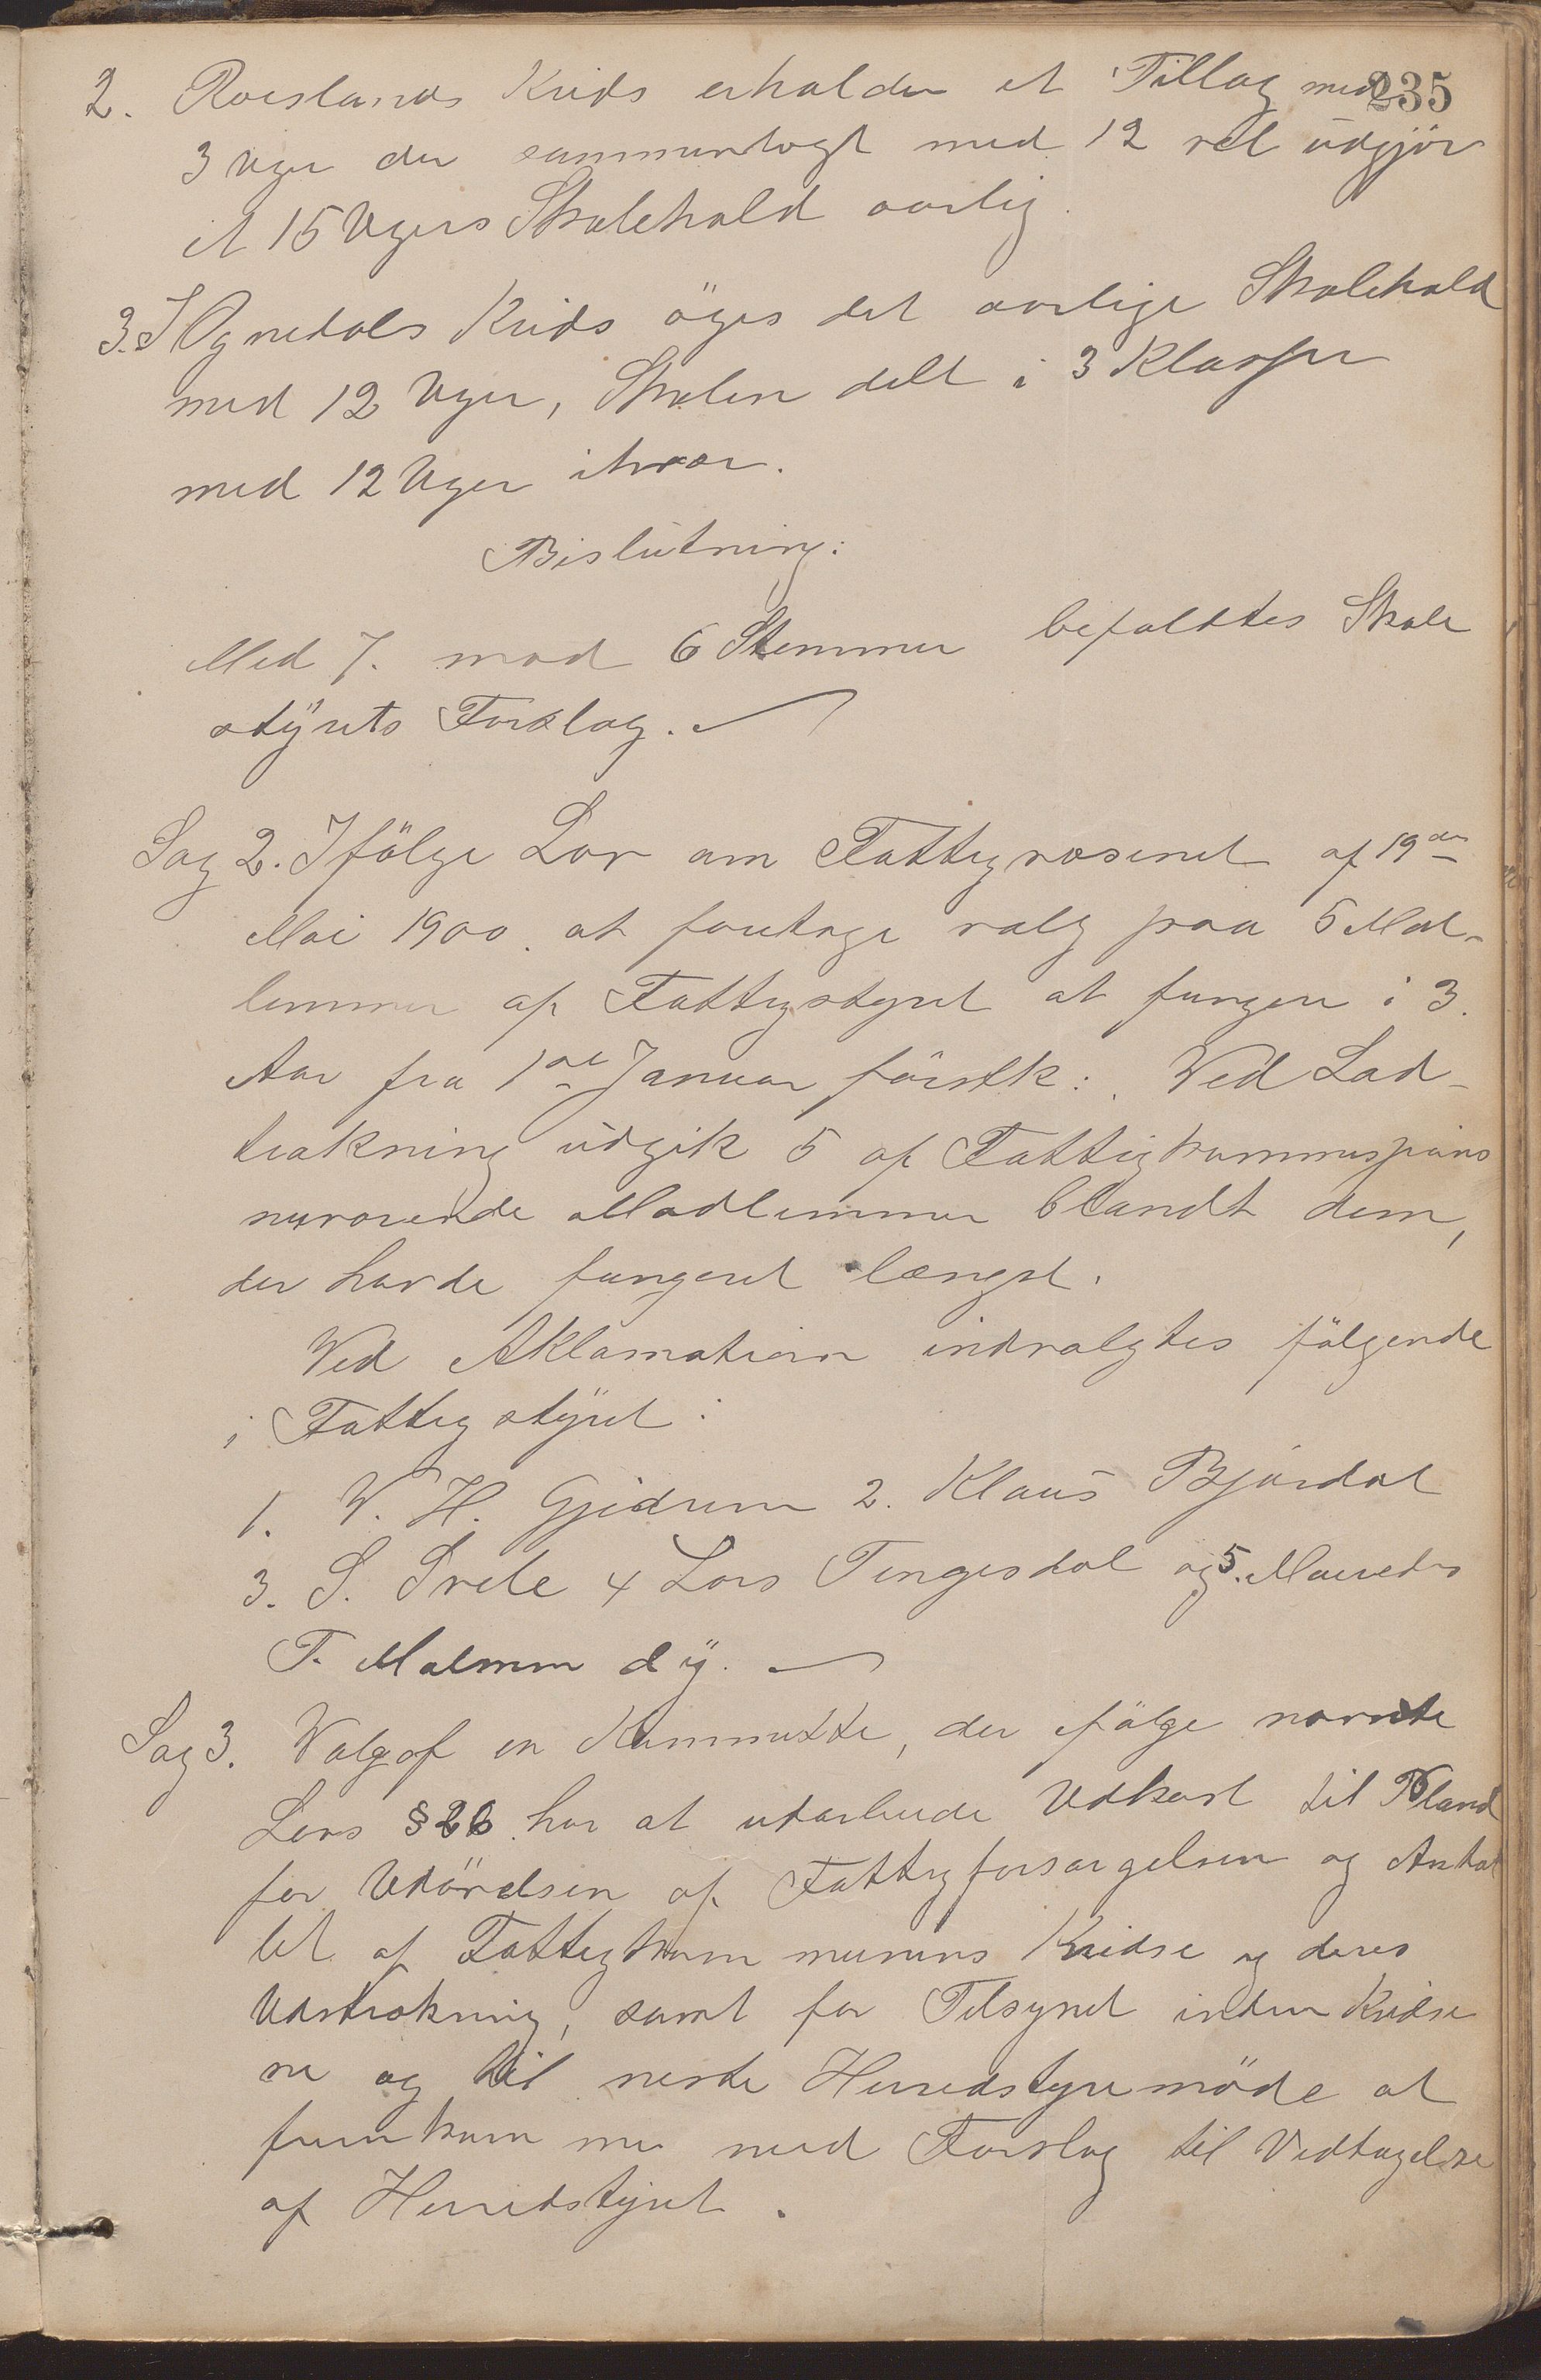 235
2. Roeslands Krids erholder et Tillæg med
3 Uger der sammenlagt med 12 vil üdgjör
et 15 Ugers Skolehold aarlig.
3. I Ognedals Krids öges det aarlige Skolehold
med 12 Uger, Skolen delt i 3 Klasser
med 12 Uger ihver.
Beslütning:
Med 7. mod 6 Stemmer befaldtes Skole
stÿrets Forslag.
Sag 2. Ifölge Lov om Fattigvæsenet af 19de
Mai 1900. at foretage valg paa 5 Med-
lemmer af Fattigstyret at fungere i 3.
Aar fra 1ste Januar förstk: Ved Lod-
trækning üdgik 5 af Fattigkommisjons
nuværende Medlemmer blandt dem,
der havde fungeret længst.
Ved Aklamation indvalgtes fölgende
i Fattigstÿret:
1. W. H. Gjedrem 2. Klaus Björdal
3. S. Svele 4 Lars Tengesdal og 5. Mauredes
T. Malmm dÿ.
Sag 3. Valg af en Kommitte, der ifölge nævnte
Lovs § 26 har at utarbeide Udkast til Pland
for Udövelsen af Fattigforsörgelsen og Antal
let af Fattigkommunens Kridse og deres
Udstrækning, samt for Tilsynet inden Kridse
ne og til neste Herredstyremöde at
fremkomme med Forslag til Vedtagelse
af Herredstÿret.